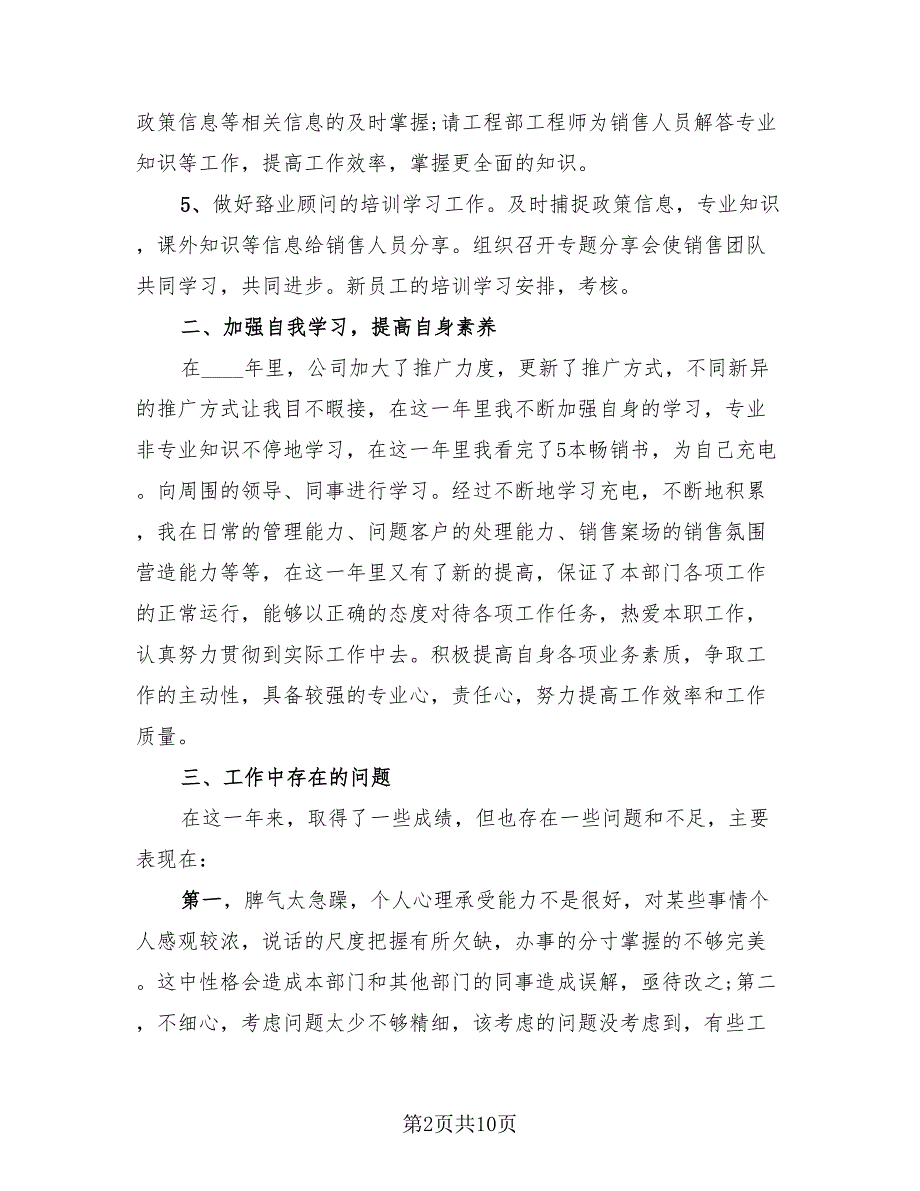 政策信息等相关信息的及时掌握;请工程部工程师为销售人员解答专业
知识等工作，提高工作效率，掌握更全面的知识。
5、做好臵业顾问的培训学习工作。及时捕捉政策信息，专业知识
，课外知识等信息给销售人员分享。组织召开专题分享会使销售团队
共同学习，共同进步。新员工的培训学习安排，考核。
二、加强自我学习，提高自身素养
在____年里，公司加大了推广力度，更新了推广方式，不同新异
的推广方式让我目不暇接，在这一年里我不断加强自身的学习，专业
非专业知识不停地学习，在这一年里我看完了5本畅销书，为自己充电
。向周围的领导、同事进行学习。经过不断地学习充电，不断地积累
，我在日常的管理能力、问题客户的处理能力、销售案场的销售氛围
营造能力等等，在这一年里又有了新的提高，保证了本部门各项工作
的正常运行，能够以正确的态度对待各项工作任务，热爱本职工作，
认真努力贯彻到实际工作中去。积极提高自身各项业务素质，争取工
作的主动性，具备较强的专业心，责任心，努力提高工作效率和工作
质量。
三、工作中存在的问题
在这一年来，取得了一些成绩，但也存在一些问题和不足，主要
表现在：
第一，脾气太急躁，个人心理承受能力不是很好，对某些事情个
人感观较浓，说话的尺度把握有所欠缺，办事的分寸掌握的不够完美
。这中性格会造成本部门和其他部门的同事造成误解，亟待改之;第二
，不细心，考虑问题太少不够精细，该考虑的问题没考虑到，有些工
第2页共10页